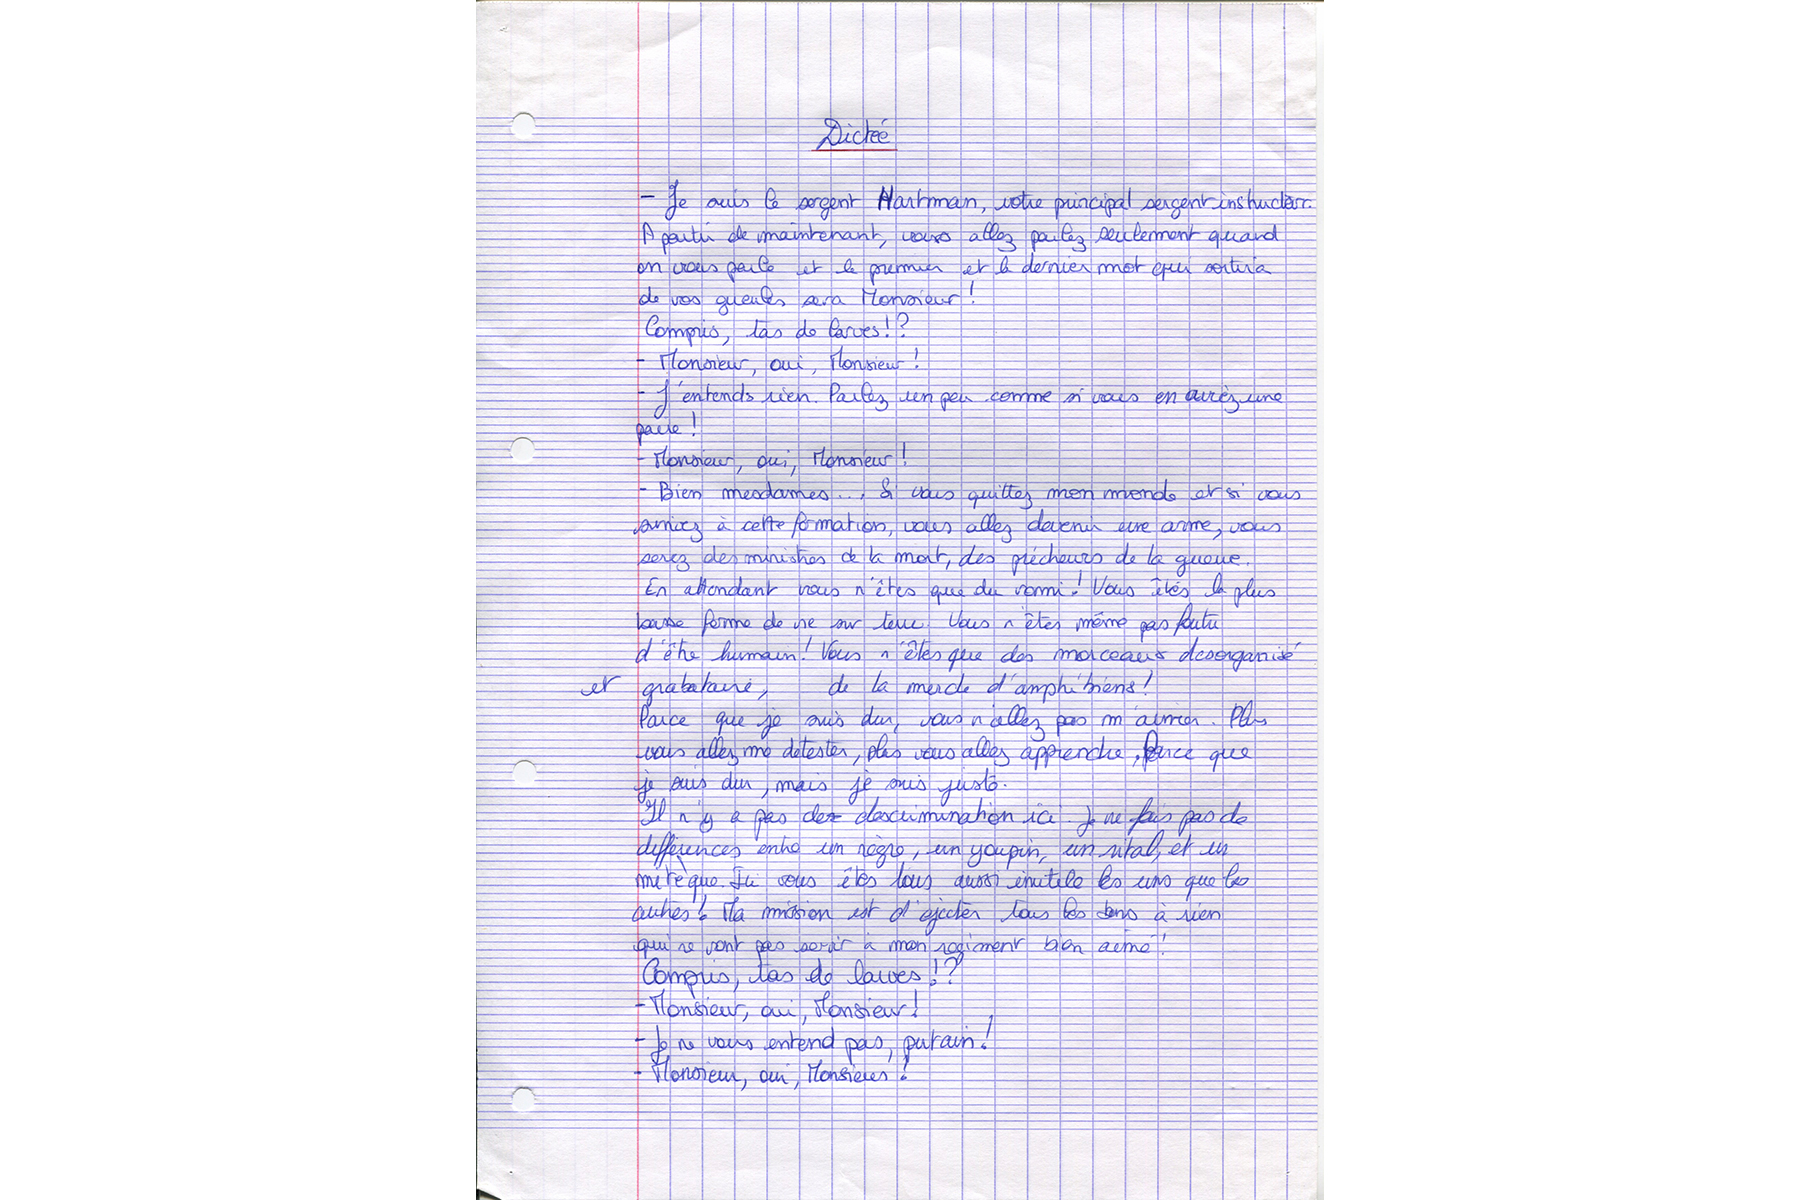 Dictée
- Je suis le sergent Hartman, votre principal sergent instructeur.
A partir de maintenant, vous allez parlez seulement quand
on vous parle et le premier et le dernier mot qui sortira
de vos gueules sera Monsieur !
Compris, tas de larves !?
- Monsieur, oui, Monsieur !
- J'entends rien. Parlez un peu comme si vous en aviez une
paire !
- Monsieur, oui, Monsieur !
- Bien mesdames... Si vous quittez mon monde et si vous
survivez à cette formation, vous allez devenir une arme, vous
serez des ministres de la mort, des pécheurs de la guerre.
En attendant vous n'êtes que du vomi ! Vous êtes la plus
basse forme de vie sur terre. Vous n'êtes même pas foutu
d'être humain ! Vous n'êtes que des morceaux désorganisé
et grabataire, de la merde d'amphibiens !
Parce que je suis dur, vous n'allez pas m'aimer. Plus
vous allez me detester, plus vous allez apprendre, Parce que
je suis dur, mais je suis juste.
Il n'y a pas de discrimination ici. Je ne fais pas de
différences entre un nègre, un youpin, un rital, et un
métèque. Ici vous êtes tous aussi inutile les uns que les
autres ! Ma mission est d'ejecter tous les bons à rien
qui ne vont pas servir à mon regiment bien aimé !
Compris, tas de larves !?
- Monsieur, oui, Monsieur !
- Je ne vous entend pas, putain !
- Monsieur, oui, Monsieur !